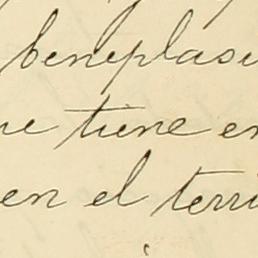 beneplasi
ue tiene en
en el terri